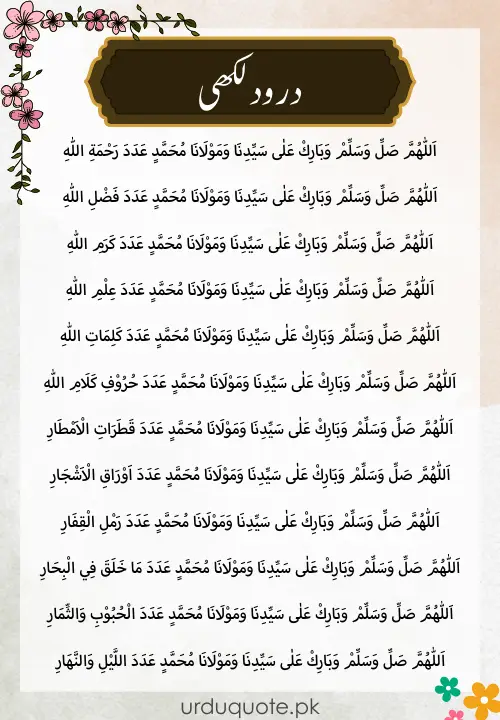 درود لکھی
اَللّٰهُمَّ صَلِّ وَسَلِّمْ وَبَارِكْ عَلٰى سَيِّدِنَا وَمَوْلَانَا مُحَمَّدٍ عَدَدَ رَحْمَةِ اللّٰهِ
اَللّٰهُمَّ صَلِّ وَسَلِّمْ وَبَارِكْ عَلٰى سَيِّدِنَا وَمَوْلَانَا مُحَمَّدٍ عَدَدَ فَضْلِ اللّٰهِ
اَللّٰهُمَّ صَلِّ وَسَلِّمْ وَبَارِكْ عَلٰى سَيِّدِنَا وَمَوْلَانَا مُحَمَّدٍ عَدَدَ كَرَمِ اللّٰهِ
اَللّٰهُمَّ صَلِّ وَسَلِّمْ وَبَارِكْ عَلٰى سَيِّدِنَا وَمَوْلَانَا مُحَمَّدٍ عَدَدَ عِلْمِ اللّٰهِ
اَللّٰهُمَّ صَلِّ وَسَلِّمْ وَبَارِكْ عَلٰى سَيِّدِنَا وَمَوْلَانَا مُحَمَّدٍ عَدَدَ كَلِمَاتِ اللّٰهِ
اَللّٰهُمَّ صَلِّ وَسَلِّمْ وَبَارِكْ عَلٰى سَيِّدِنَا وَمَوْلَانَا مُحَمَّدٍ عَدَدَ حُرُوْفِ كَلَامِ اللّٰهِ
اَللّٰهُمَّ صَلِّ وَسَلِّمْ وَبَارِكْ عَلٰى سَيِّدِنَا وَمَوْلَانَا مُحَمَّدٍ عَدَدَ قَطَرَاتِ الْاَمْطَارِ
اَللّٰهُمَّ صَلِّ وَسَلِّمْ وَبَارِكْ عَلٰى سَيِّدِنَا وَمَوْلَانَا مُحَمَّدٍ عَدَدَ اَوْرَاقِ الْاَشْجَارِ
اَللّٰهُمَّ صَلِّ وَسَلِّمْ وَبَارِكْ عَلٰى سَيِّدِنَا وَمَوْلَانَا مُحَمَّدٍ عَدَدَ رَمْلِ الْقِفَارِ
اَللّٰهُمَّ صَلِّ وَسَلِّمْ وَبَارِكْ عَلٰى سَيِّدِنَا وَمَوْلَانَا مُحَمَّدٍ عَدَدَ مَا خَلَقَ فِي الْبِحَارِ
اَللّٰهُمَّ صَلِّ وَسَلِّمْ وَبَارِكْ عَلٰى سَيِّدِنَا وَمَوْلَانَا مُحَمَّدٍ عَدَدَ الْحُبُوْبِ وَالثِّمَارِ
اَللّٰهُمَّ صَلِّ وَسَلِّمْ وَبَارِكْ عَلٰى سَيِّدِنَا وَمَوْلَانَا مُحَمَّدٍ عَدَدَ اللَّيْلِ وَالنَّهَارِ
urduquote.pk